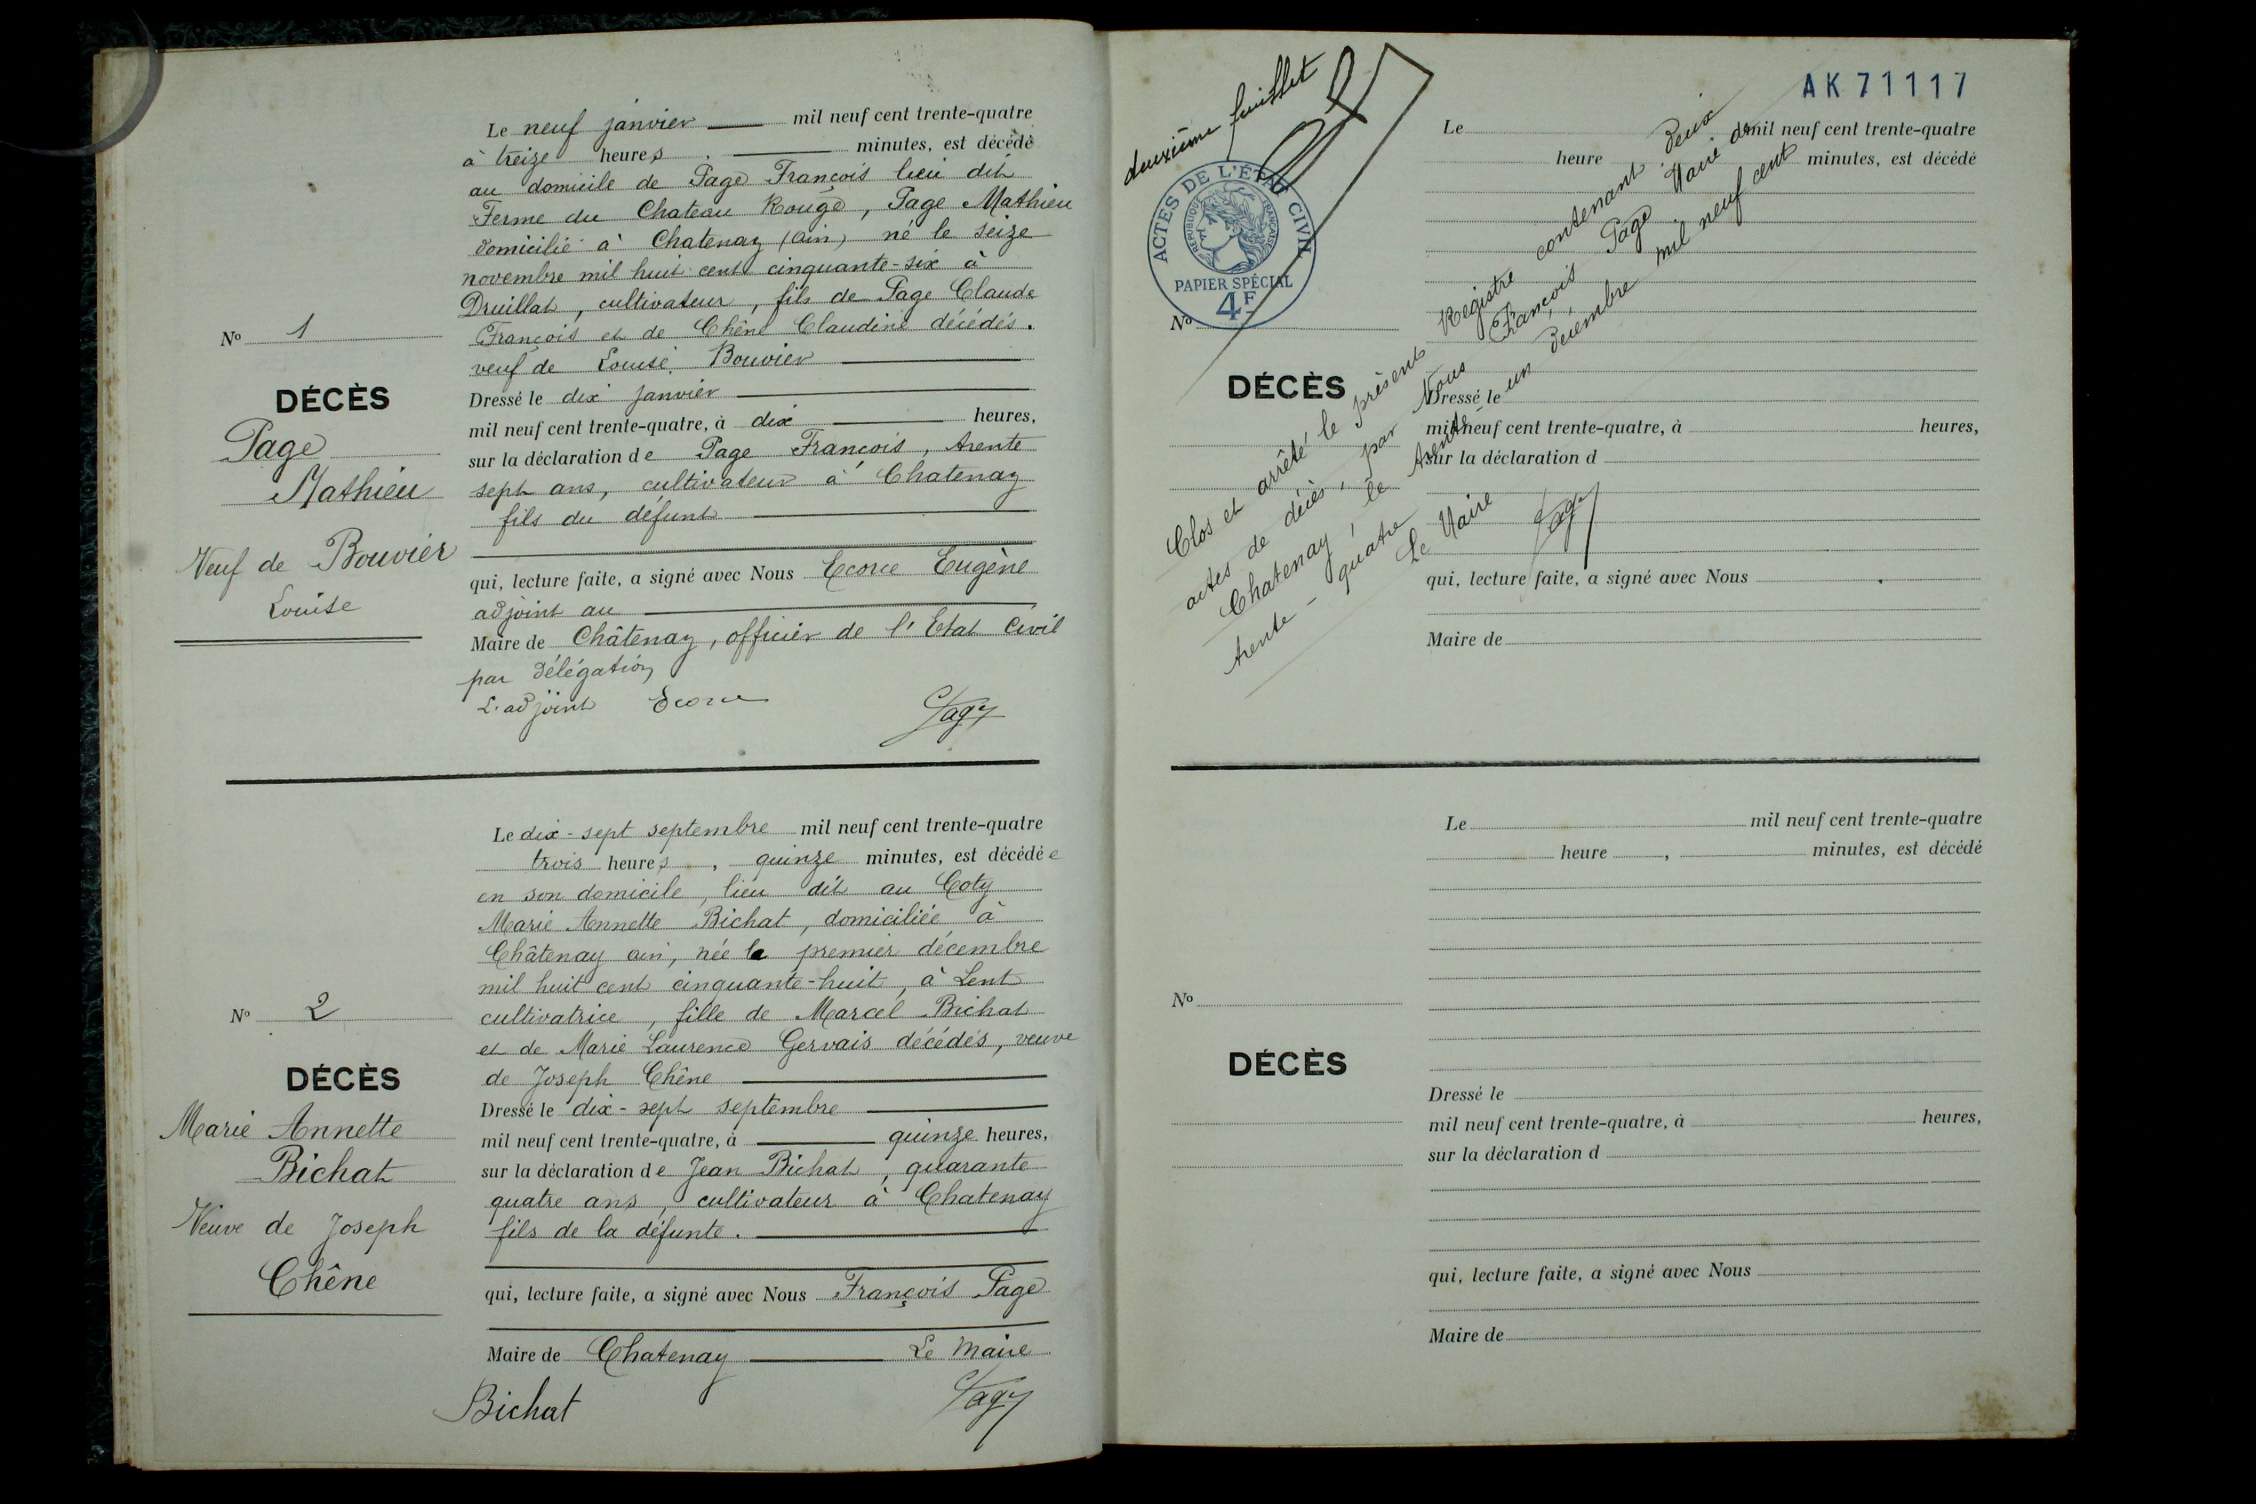 Le neuf janvier mil neuf cent trente-quatre
à treize heures minutes, est décédé
au domicile de Page François lieu dit
Ferme du Chateau Rouge, Page Mathieu
domicilié à Chatenay (Ain) né le seize
novembre mil huit cent cinquante-six à
Druillat, cultivateur, fils de Page Claude
François et de Chêne Claudine décédés.
veuf de Louise Bouvier
Dressé le dix janvier
mil neuf cent trente-quatre, à dix heures,
sur la déclaration de Page François, trente
sept ans, cultivateur à Chatenay
fils du défunt
qui, lecture faite, a signé avec Nous Ecorce Eugène
adjoint au
Maire de Châtenay, officier de l'Etat Civil
par délégation
L'adjoint Ecorce Page
No 1
DÉCÈS
Page
Mathieu
Veuf de Bouvier
Louise
Le dix-sept septembre mil neuf cent trente-quatre
trois heures, quinze minutes, est décédée
en son domicile, lieu dit au Coty
Marie Annette Bichat, domiciliée à
Châtenay ain, née le premier décembre
mil huit cent cinquante-huit, à Lent
cultivatrice, fille de Marcel Bichat
et de Marie Laurence Gervais décédés, veuve
de Joseph Chêne
Dressé le dix-sept septembre
mil neuf cent trente-quatre, à quinze heures,
sur la déclaration de Jean Bichat, quarante
quatre ans, cultivateur à Chatenay
fils de la défunte.
qui, lecture faite, a signé avec Nous François Page
Maire de Chatenay Le Maire
Bichat Page
No 2
DÉCÈS
Marie Annette
Bichat
Veuve de Joseph
Chêne
deuxième feuillet
AK 71117
ACTES DE L'ÉTAT CIVIL
RÉPUBLIQUE FRANÇAISE
PAPIER SPÉCIAL
4F
Clos et arrêté le présent Registre contenant deux
actes de décès, par Nous François Page Maire de
Chatenay, le trente-un décembre mil neuf cent
trente-quatre
Le Maire Page
Le mil neuf cent trente-quatre
heure minutes, est décédé
No
DÉCÈS
Dressé le
mil neuf cent trente-quatre, à heures,
sur la déclaration d
qui, lecture faite, a signé avec Nous
Maire de
Le mil neuf cent trente-quatre
heure, minutes, est décédé
No
DÉCÈS
Dressé le
mil neuf cent trente-quatre, à heures,
sur la déclaration d
qui, lecture faite, a signé avec Nous
Maire de